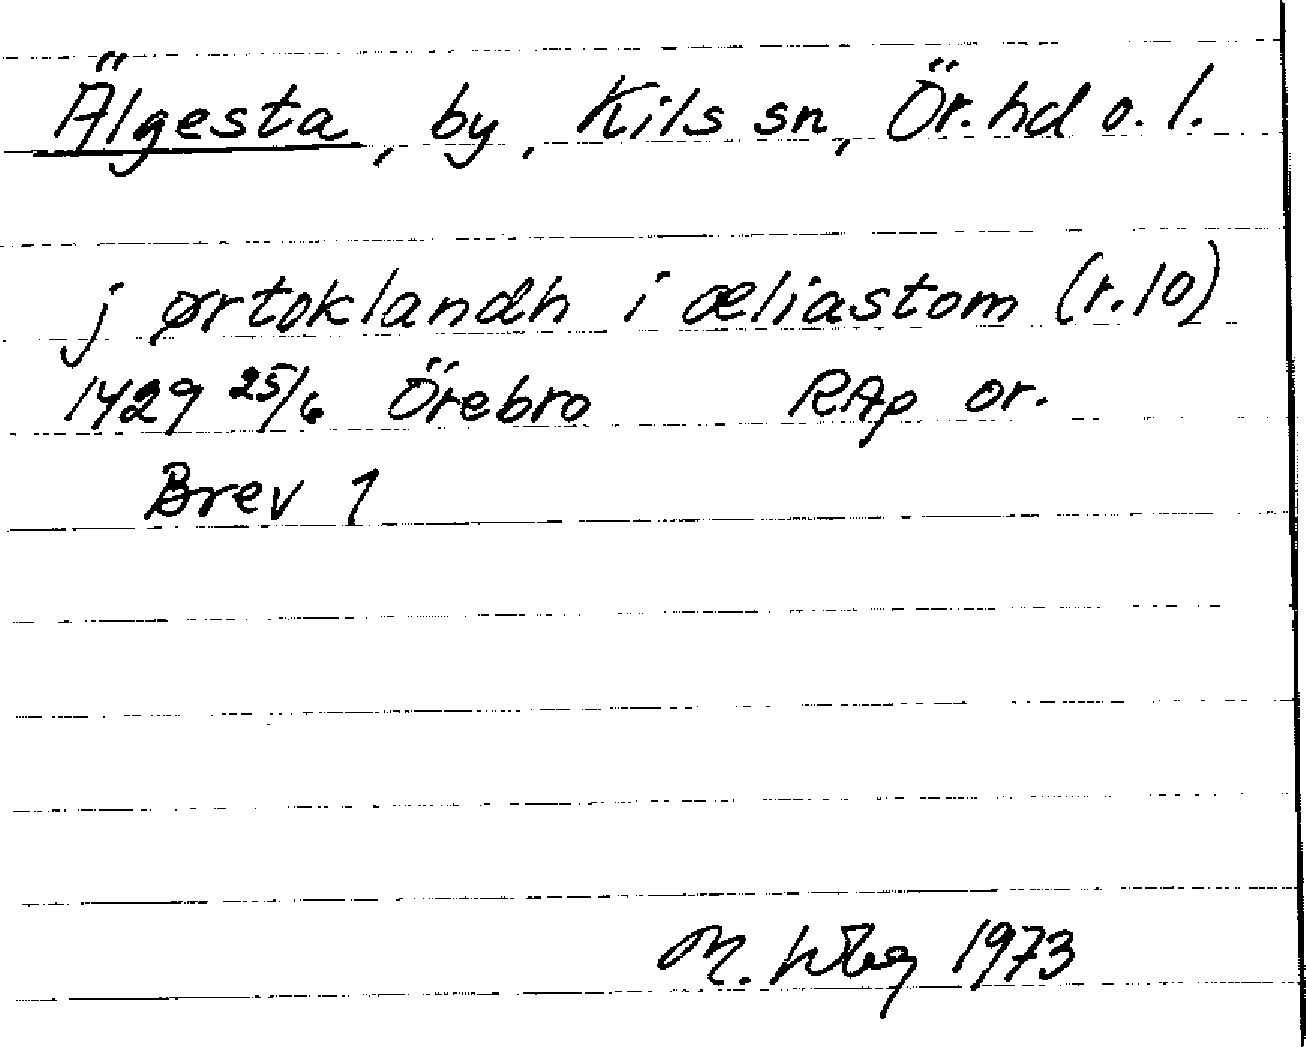 Älgesta, by, Kils sn, Ör. hd o. l.
j ørtoklandh i æliastom (r. 10)
1429 25/6 Örebro RAp or.
Brev 1
M. 1973